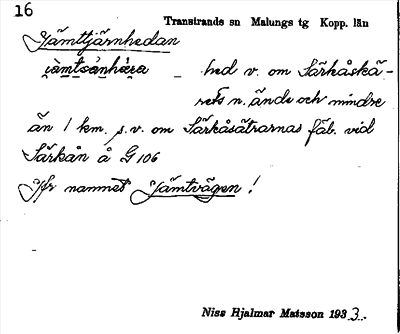 16
Transtrands sn Malungs tg Kopp. län
Jämttjärnhedan
i̯àmtsə́nhèra – hed v. om Särkåskä-
rets n. ände och mindre
än 1 km. s.v. om Särkåsätrarnas fäb. vid
Särkån å G 106
Jfr namnet Jämtvägen!
Niss Hjalmar Matsson 1933.